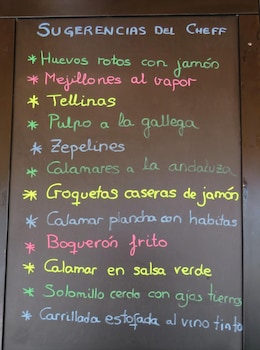 SUGERENCIAS DEL CHEFF
* Huevos rotos con jamón
* Mejillones al vapor
* Tellinas
* Pulpo a la gallega
* Zepelines
* Calamares a la andaluza
* Croquetas caseras de jamón
* Calamar plancha con habitas
* Boquerón frito
* Calamar en salsa verde
* Solomillo cerdo con ajos tiernos
* Carrillada estofada al vino tinto